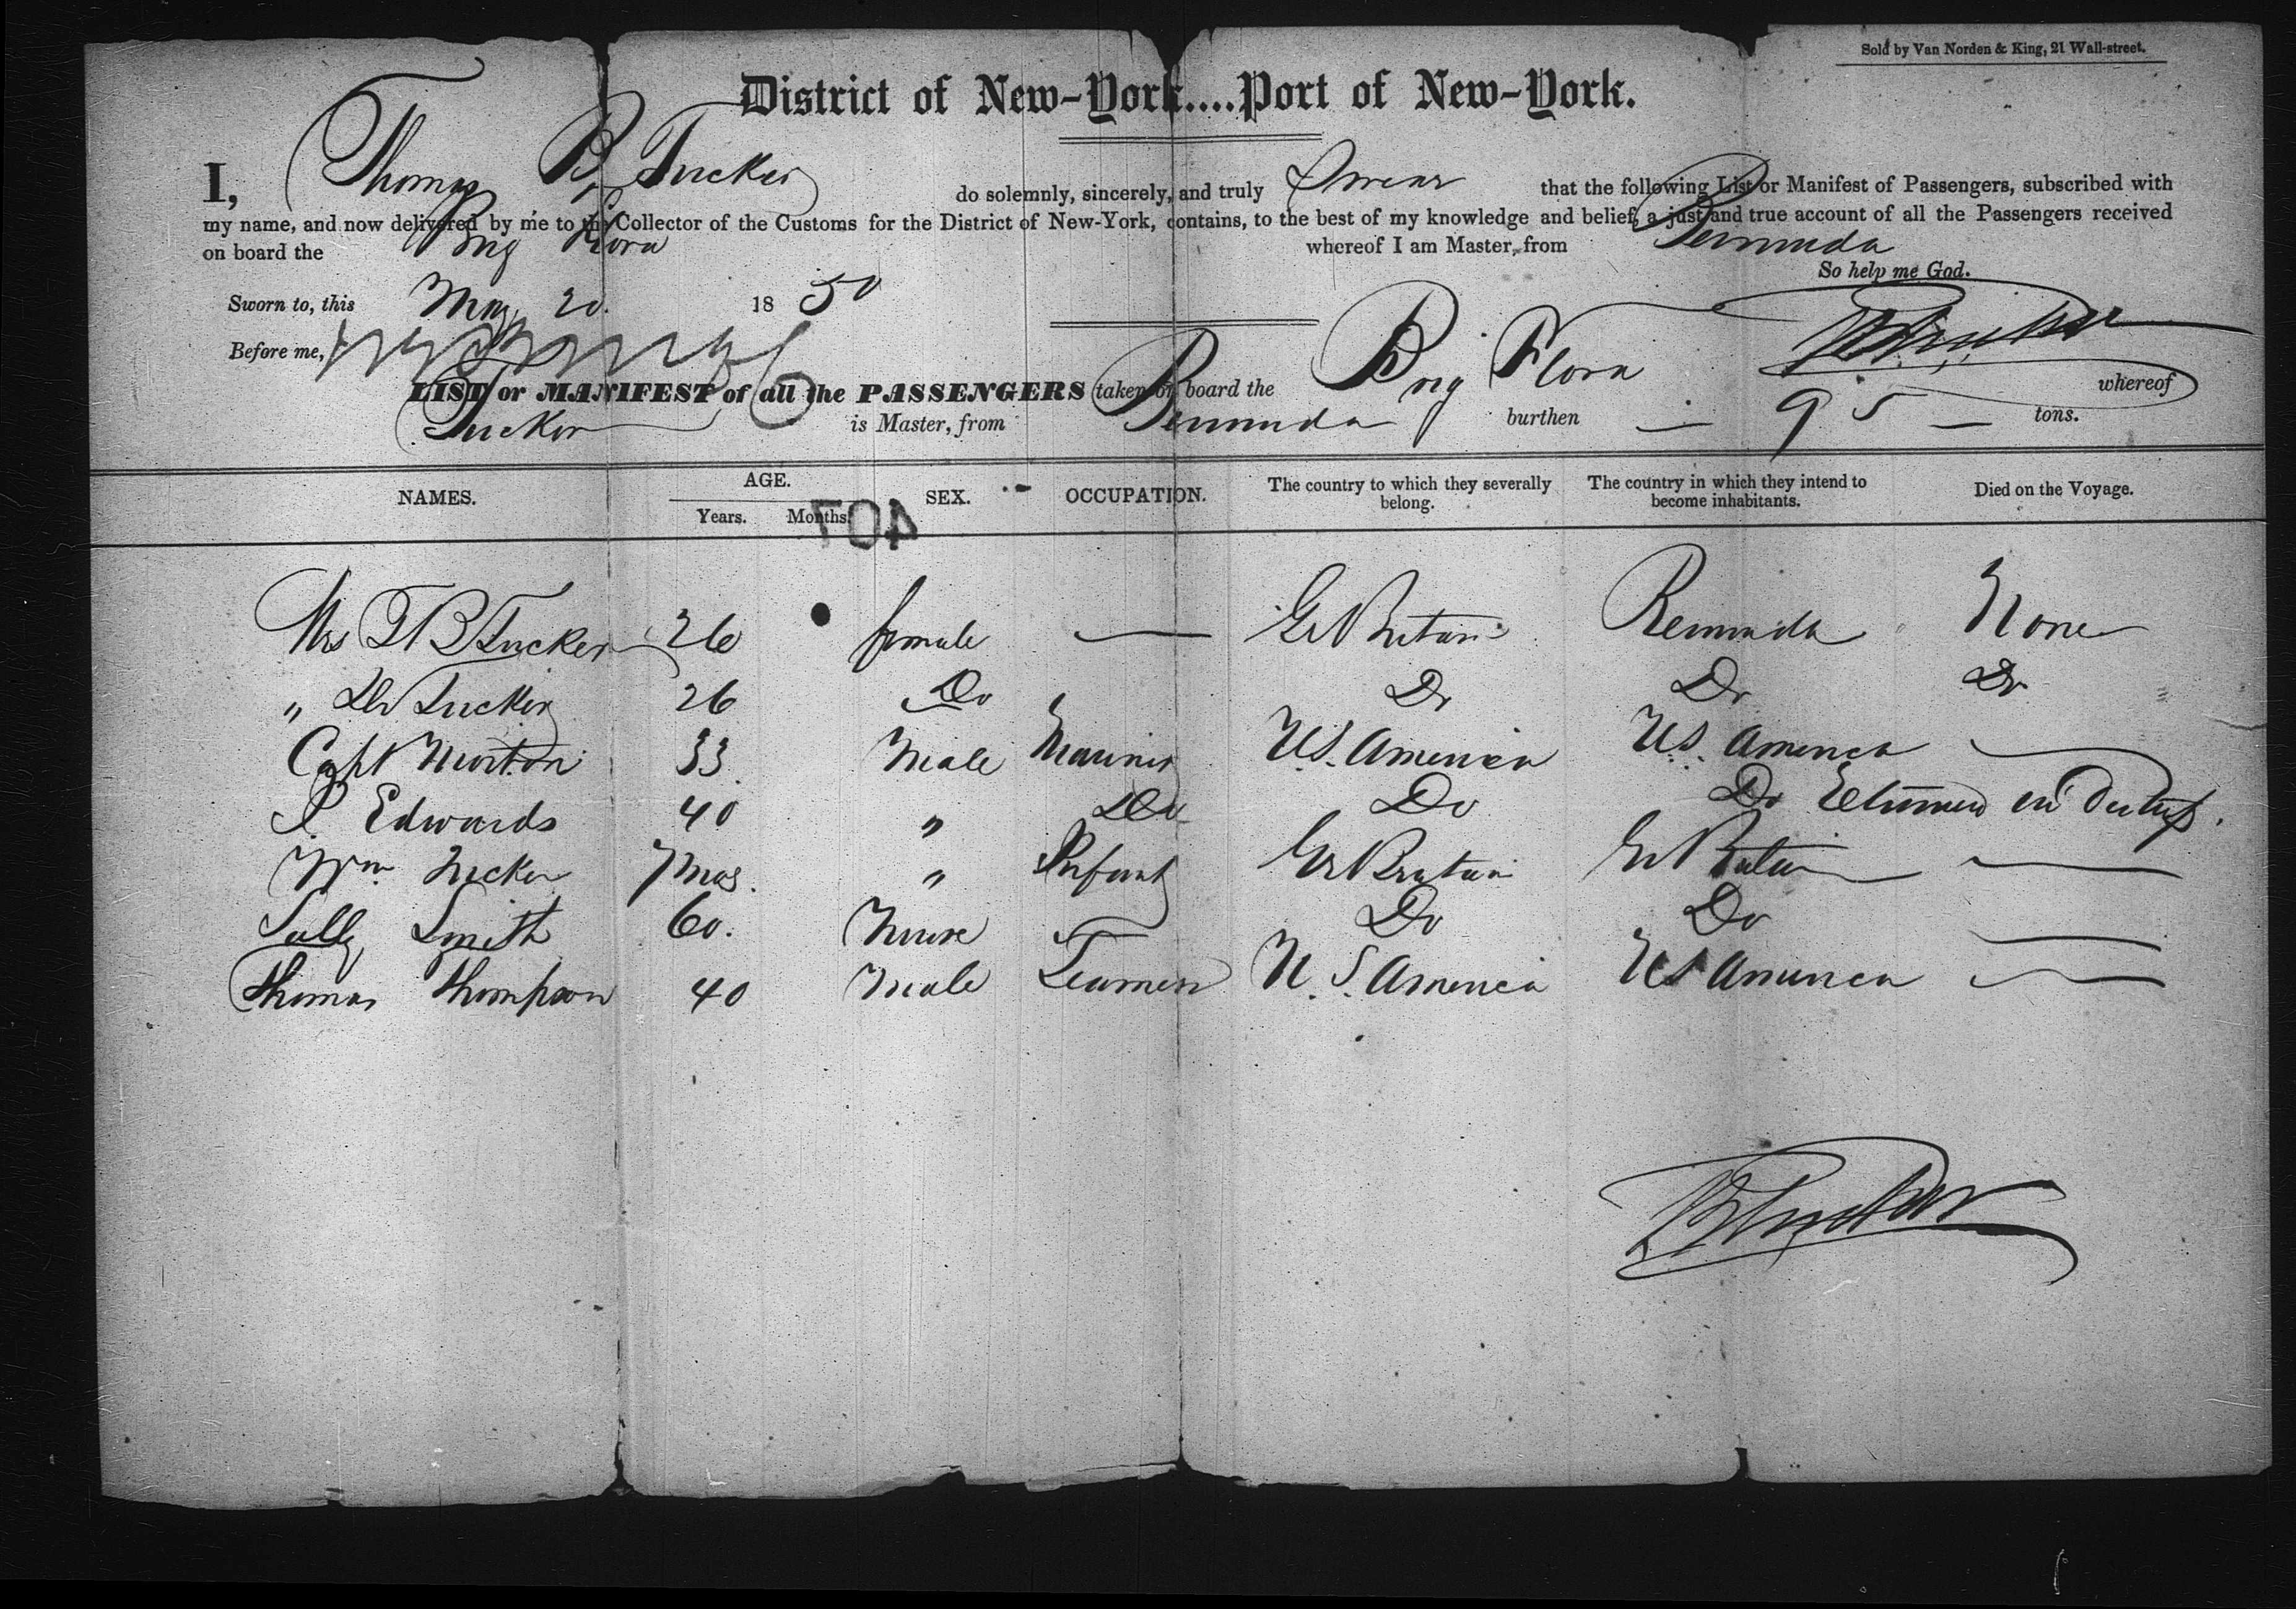 Sold by Van Norden & King, 21 Wall-street.
District of New-York....Port of New-York.
I, Thomas B Tucker do solemnly, sincerely, and truly Swear that the following List or Manifest of Passengers, subscribed with
my name, and now delivered by me to the Collector of the Customs for the District of New-York, contains, to the best of my knowledge and belief, a just and true account of all the Passengers received
on board the Brig Flora whereof I am Master, from Bermuda
So help me God.
Sworn to, this May 20. 1850
Before me,
TBTucker
LIST or MANIFEST of all the PASSENGERS taken on board the Brig Flora whereof
Tucker is Master, from Bermuda burthen 95 tons.
NAMES. AGE. SEX. OCCUPATION. The country to which they severally belong. The country in which they intend to become inhabitants. Died on the Voyage.
Years. Months.
407
Mrs TB Tucker 26 female — Gr Britain Bermuda None
" Tucker 26 Do Do Do Do
Capt Morton 33. Male Mariner U.S. America U.S. America —
P Edwards 40 " Do Do Do
Wm Tucker 7 mos. " Infant Gr Britain Gr Britain —
Sally Smith 60. Nurse Do Do —
Thomas Thompson 40 Male Seamen U.S. America US America —
TBTucker